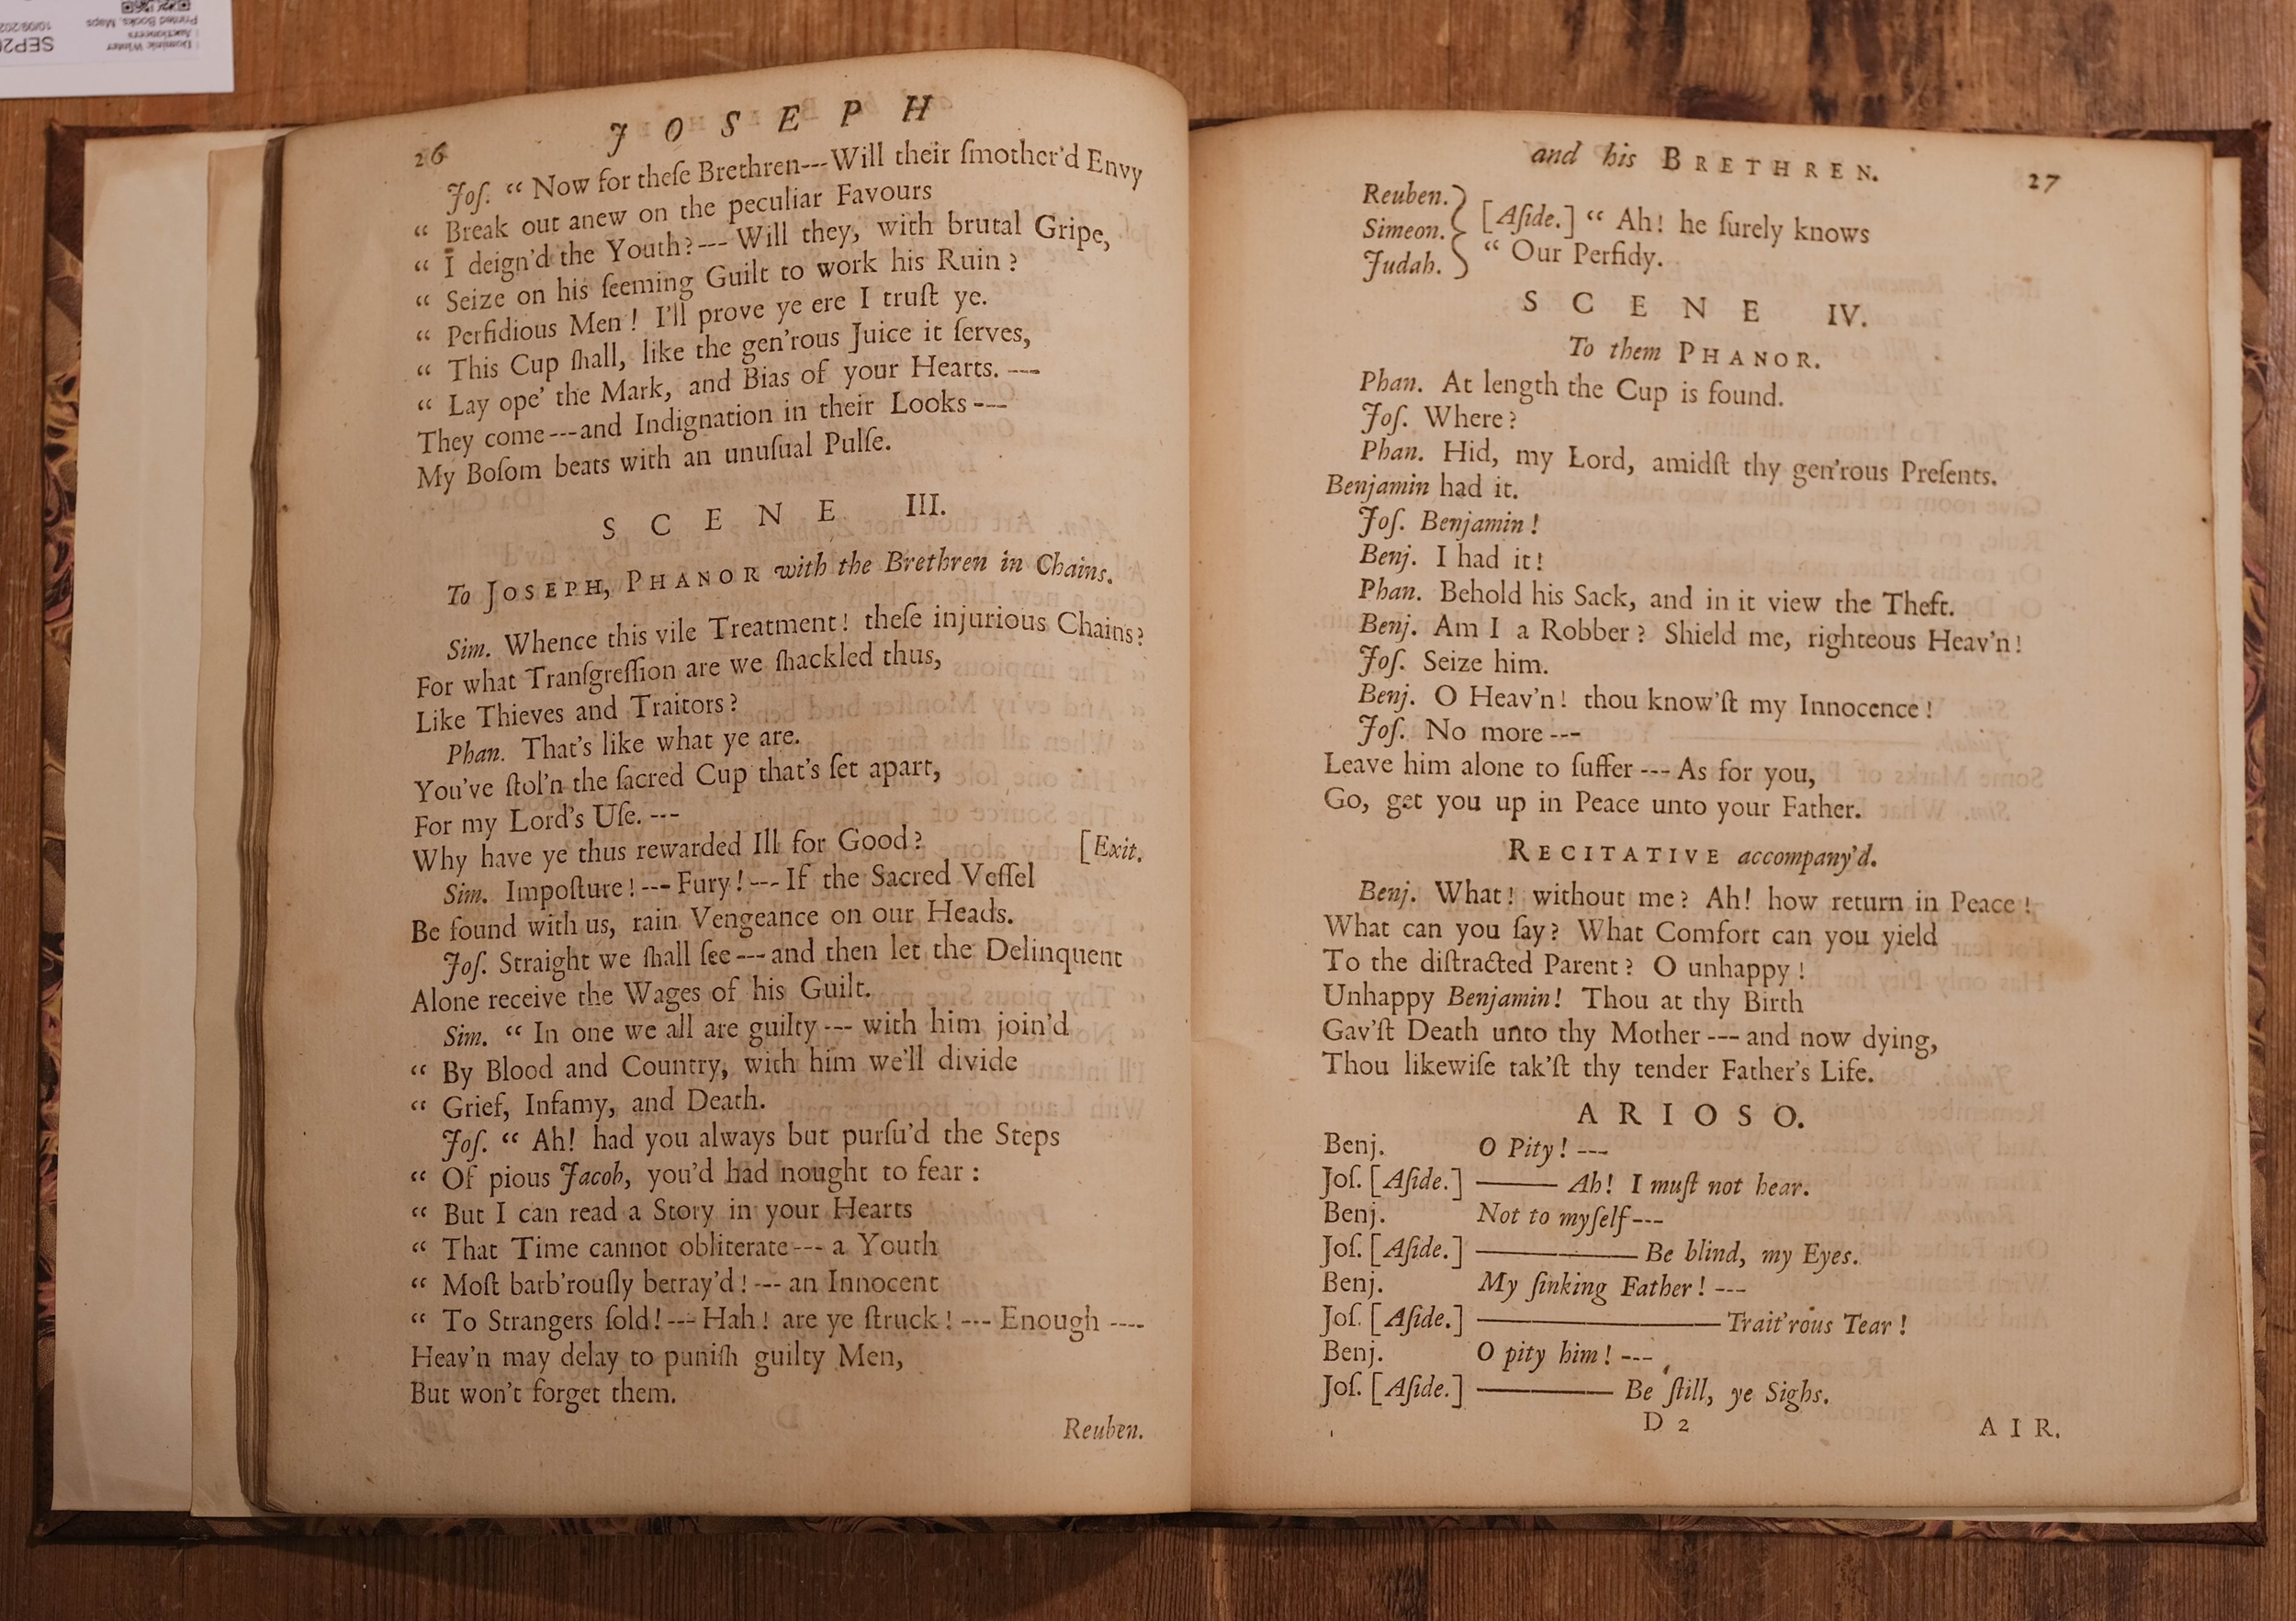 26
JOSEPH
Joſ. “ Now for theſe Brethren---Will their ſmother'd Envy
“ Break out anew on the peculiar Favours
“ I deign'd the Youth?--- Will they, with brutal Gripe,
“ Seize on his ſeeming Guilt to work his Ruin?
“ Perfidious Men! I'll prove ye ere I truſt ye.
“ This Cup ſhall, like the gen'rous Juice it ſerves,
“ Lay ope' the Mark, and Bias of your Hearts. ---
They come---and Indignation in their Looks---
My Boſom beats with an unuſual Pulſe.
SCENE III.
To JOSEPH, PHANOR with the Brethren in Chains.
Sim. Whence this vile Treatment! theſe injurious Chains?
For what Tranſgreſſion are we ſhackled thus,
Like Thieves and Traitors?
Phan. That's like what ye are.
You've ſtol'n the ſacred Cup that's ſet apart,
For my Lord's Uſe. ---
Why have ye thus rewarded Ill for Good? [Exit.
Sim. Impoſture! --- Fury! --- If the Sacred Veſſel
Be found with us, rain Vengeance on our Heads.
Joſ. Straight we ſhall ſee --- and then let the Delinquent
Alone receive the Wages of his Guilt.
Sim. “ In one we all are guilty --- with him join'd
“ By Blood and Country, with him we'll divide
“ Grief, Infamy, and Death.
Joſ. “ Ah! had you always but purſu'd the Steps
“ Of pious Jacob, you'd had nought to fear:
“ But I can read a Story in your Hearts
“ That Time cannot obliterate --- a Youth
“ Moſt barb'rouſly betray'd! --- an Innocent
“ To Strangers ſold! --- Hah! are ye ſtruck! --- Enough ----
Heav'n may delay to puniſh guilty Men,
But won't forget them.
Reuben.
and his BRETHREN.
27
Reuben.
Simeon.
Judah.
[Aſide.] “ Ah! he ſurely knows
“ Our Perfidy.
SCENE IV.
To them PHANOR.
Phan. At length the Cup is found.
Joſ. Where?
Phan. Hid, my Lord, amidſt thy gen'rous Preſents.
Benjamin had it.
Joſ. Benjamin!
Benj. I had it!
Phan. Behold his Sack, and in it view the Theft.
Benj. Am I a Robber? Shield me, righteous Heav'n!
Joſ. Seize him.
Benj. O Heav'n! thou know'ſt my Innocence!
Joſ. No more ---
Leave him alone to ſuffer --- As for you,
Go, get you up in Peace unto your Father.
RECITATIVE accompany'd.
Benj. What! without me? Ah! how return in Peace!
What can you ſay? What Comfort can you yield
To the diſtracted Parent? O unhappy!
Unhappy Benjamin! Thou at thy Birth
Gav'ſt Death unto thy Mother --- and now dying,
Thou likewiſe tak'ſt thy tender Father's Life.
ARIOSO.
Benj. O Pity! ---
Joſ. [Aſide.] —— Ah! I muſt not hear.
Benj. Not to myſelf ---
Joſ. [Aſide.] ———— Be blind, my Eyes.
Benj. My ſinking Father! ---
Joſ. [Aſide.] —————— Trait'rous Tear!
Benj. O pity him! ---
Joſ. [Aſide.] ——— Be ſtill, ye Sighs.
D 2
AIR.
Dominic Winter
Auctioneers
Printed Books, Maps